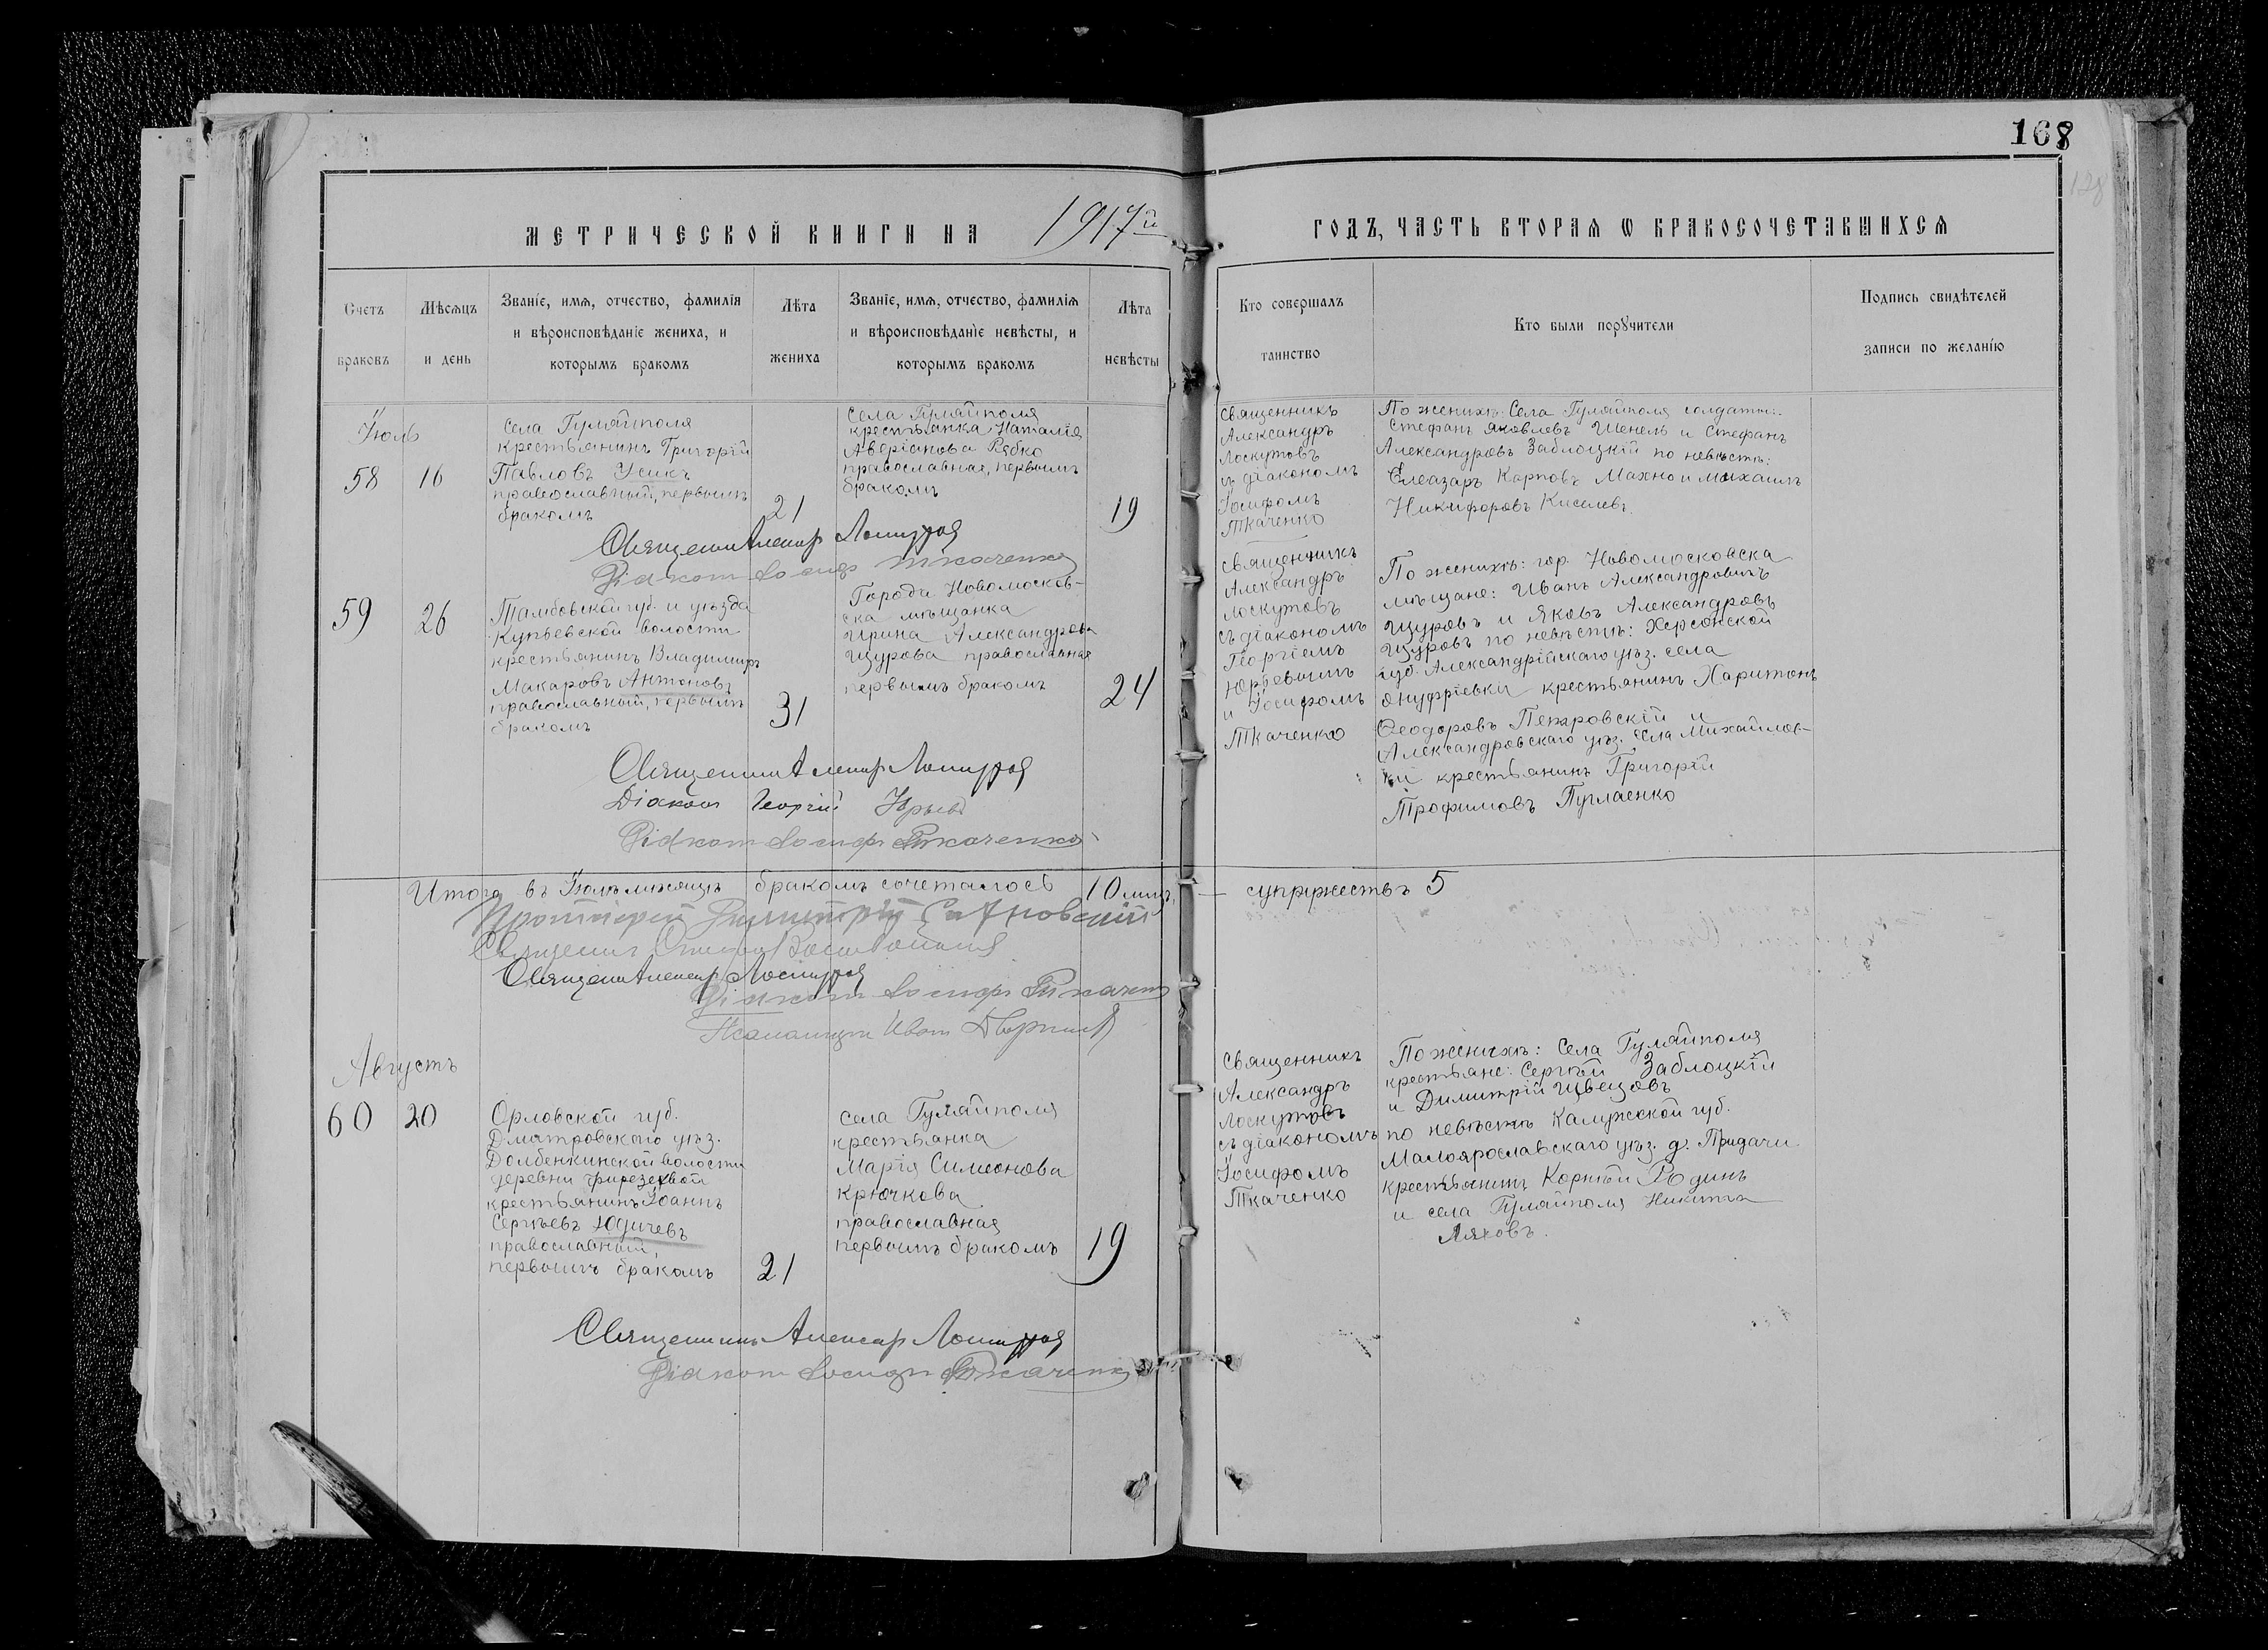 168
128
МЕТРИЧЕСКОЙ КНИГИ НА 1917й
ГОДЪ, ЧАСТЬ ВТОРАЯ Ѡ БРАКОСОЧЕТАВШИХСЯ
Счетъ
браковъ
Мѣсяцъ
и день
Званіе, имя, отчество, фамилія
и вѣроисповѣданіе жениха, и
которымъ бракомъ
Лѣта
жениха
Званіе, имя, отчество, фамилія
и вѣроисповѣданіе невѣсты, и
которымъ бракомъ
Лѣта
невѣсты
Кто совершалъ
таинство
Кто были порꙋчители
Подпись свидѣтелей
записи по желанію
Іюль
58
16
Села Гуляйполя
крестьянинъ Григорій
Павловъ Усикъ
православный, первымъ
бракомъ
21
Села Гуляйполя
крестьянка Наталія
Аверіанова Рябко
православная, первымъ
бракомъ
19
Священникъ
Александръ
Лоскутовъ
съ діакономъ
Іосифомъ
Ткаченко
По женихѣ: Села Гуляйполя солдаты:
Стефанъ Яковлевъ Шенель и Стефанъ
Александровъ Заблоцкій по невѣстѣ:
Елеазаръ Карповъ Махно и Михаилъ
Никифоровъ Киселевъ.
Діакон Іосиф Ткаченко
59
26
Тамбовской губ. и уѣзда
волости
крестьянинъ Владимиръ
Макаровъ Антоновъ
православный, первымъ
бракомъ
31
Города Новомосков-
ска мѣщанка
Ирина Александрова
Щурова православная
первымъ бракомъ
24
Священникъ
Александръ
Лоскутовъ
съ діакономъ
Георгіемъ
Юрьевымъ
и Іосифомъ
Ткаченко
По женихѣ: гор. Новомосковска
мѣщане: Иванъ Александровичъ
Щуровъ и Яковъ Александровъ
Щуровъ по невѣстѣ: Херсонской
губ. Александрійскаго уѣз. села
Онуфріевки крестьянинъ Харитонъ
Ѳеодоровъ Петровскій и
Александровскаго уѣз. села Михайлов-
ки крестьянинъ Григорій
Трофимовъ
Діакон Георгій Юрьев
Діакон Іосиф Ткаченко
Итого въ Іюлѣ мѣсяцѣ бракомъ сочеталось 10 лицъ, — супружествъ 5
Протоіерей Димитрій
Діакон Іосиф Ткаченко
Псаломщик Иван
Августъ
60
20
Орловской губ.
Дмитровскаго уѣз.
Долбенкинской волости
деревни
крестьянинъ Іоаннъ
Сергѣевъ Юдичевъ
православный,
первымъ бракомъ
21
села Гуляйполя
крестьянка
Марія Симеонова
Крючкова
православная
первымъ бракомъ
19
Священникъ
Александръ
Лоскутовъ
съ діакономъ
Іосифомъ
Ткаченко
По женихѣ: Села Гуляйполя
крестьяне: Сергѣй Заблоцкій
и Димитрій Швецовъ
по невѣстѣ Калужской губ.
Малоярославскаго уѣз. д. Придачи
крестьянинъ Корнѣй Родинъ
и села Гуляйполя Никита
Ляховъ.
Діакон Іосиф Ткаченко